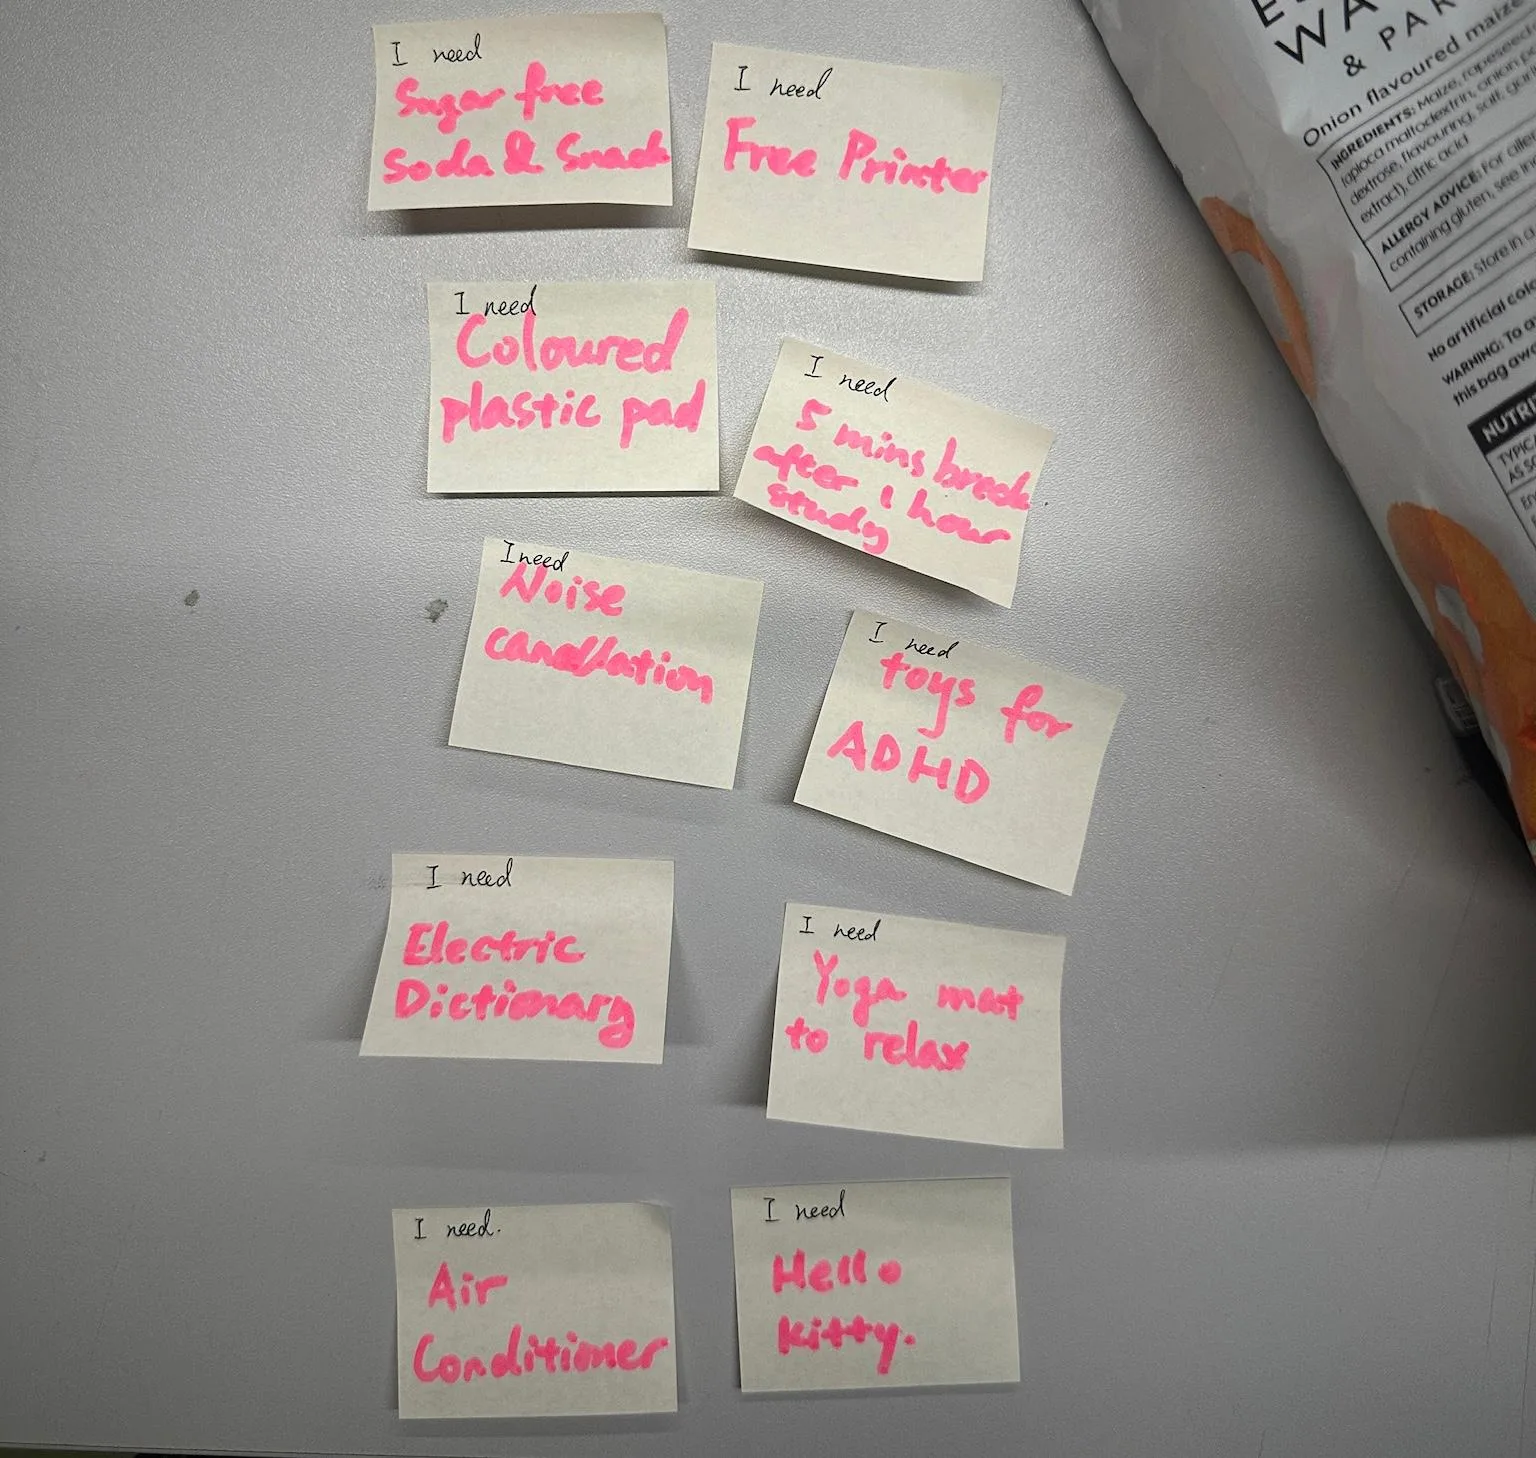 I need
Sugar free
Soda & Snack
I need
Free Printer
I need
Coloured
plastic pad
I need
5 mins break
after 1 hour
study
I need
Noise
cancellation
I need
toys for
ADHD
I need
Electric
Dictionary
I need
Yoga mat
to relax
I need.
Air
Conditioner
I need
Hello
Kitty.
WA
& PAR
Onion flavoured maize
INGREDIENTS: Maize, rapeseed
tapioca maltodextrin, onion
dextrose, flavouring, salt,
extract), citric acid
ALLERGY ADVICE: For
containing gluten, see
STORAGE: Store in a
No artificial
WARNING: To
this bag